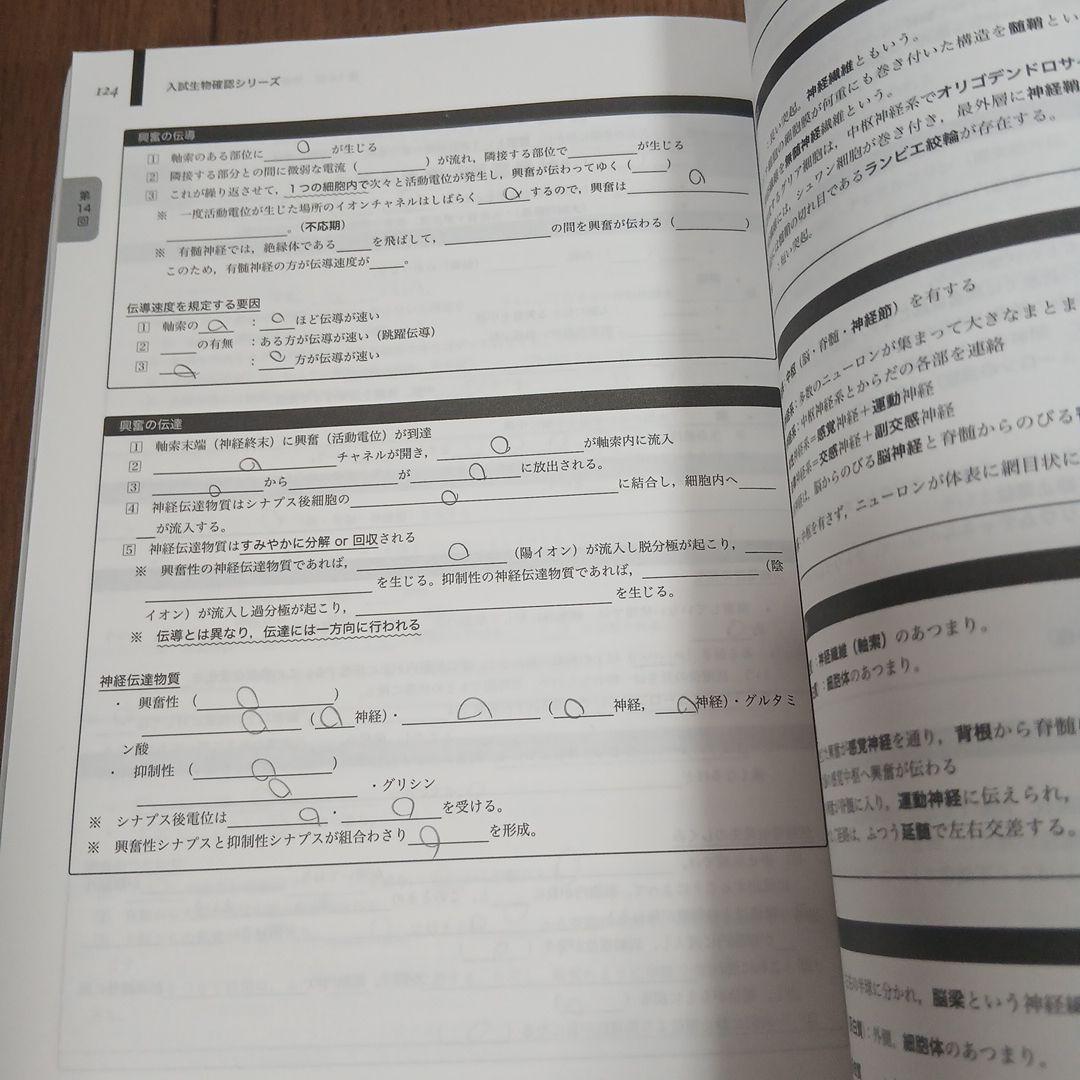 124
入試生物確認シリーズ
第14回
興奮の伝導
1 軸索のある部位に______が生じる
2 隣接する部分との間に微弱な電流(______)が流れ，隣接する部位で______が生じる
3 これが繰り返させて，1つの細胞内で次々と活動電位が発生し，興奮が伝わってゆく(______)
※ 一度活動電位が生じた場所のイオンチャネルはしばらく______するので，興奮は______
______。(不応期)
※ 有髄神経では，絶縁体である______を飛ばして，______の間を興奮が伝わる(______)
このため，有髄神経の方が伝導速度が______。
伝導速度を規定する要因
1 軸索の______：______ほど伝導が速い
2 ______の有無：ある方が伝導が速い(跳躍伝導)
3 ______：______方が伝導が速い
興奮の伝達
1 軸索末端(神経終末)に興奮(活動電位)が到達
2 ______チャネルが開き，______が軸索内に流入
3 ______から______が______に放出される。
4 神経伝達物質はシナプス後細胞の______に結合し，細胞内へ______
__が流入する。
5 神経伝達物質はすみやかに分解 or 回収される
※ 興奮性の神経伝達物質であれば，______(陽イオン)が流入し脱分極が起こり，______
______を生じる。抑制性の神経伝達物質であれば，______(陰
イオン)が流入し過分極が起こり，______を生じる。
※ 伝導とは異なり，伝達には一方向に行われる
神経伝達物質
・ 興奮性 (______)
______(______神経)・______(______神経，______神経)・グルタミ
ン酸
・ 抑制性 (______)
______・グリシン
※ シナプス後電位は______・______を受ける。
※ 興奮性シナプスと抑制性シナプスが組合わさり______を形成。
長い突起。神経繊維ともいう。
の細胞膜が何重にも巻き付いた構造を髄鞘とい
無髄神経繊維という。
グリア細胞は，中枢神経系でオリゴデンドロサ
には，シュワン細胞が巻き付き，最外層に神経鞘
髄鞘の切れ目であるランビエ絞輪が存在する。
：短い突起。
中枢(脳・脊髄・神経節)を有する
：多数のニューロンが集まって大きなまとま
：中枢神経系とからだの各部を連絡
＝感覚神経＋運動神経
＝交感神経＋副交感神経
は，脳からのびる脳神経と脊髄からのびる
中枢を有さず，ニューロンが体表に網目状に
：神経繊維(軸索)のあつまり。
：細胞体のあつまり。
興奮が感覚神経を通り，背根から脊髄
感覚中枢へ興奮が伝わる
脊髄に入り，運動神経に伝えられ，
は，ふつう延髄で左右交差する。
の半球に分かれ，脳梁という神経繊
：外側。細胞体のあつまり。